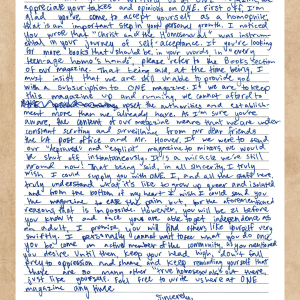 appreciate your takes and opinions on ONE. First off, I'm
glad you've come to accept yourself as a homophile,
what is an important step in your personal growth. I noticed
you wrote that "Christ and the Homosexual" was instrum-
ental in your journey of self acceptance. If you're looking
for more books that should be in your words in "every
teenage homo's hands", please refer to the Books section
of our magazine. That being said, at the time being, I
must insist that we are still unable to provide you
with a subscription to ONE magazine. If we are to keep
this magazine up and running, we cannot afford to
upset the authorities and establish-
ment more than we already have. As I'm sure you're
aware, the content of our magazine means that we are under
constant scrutiny and surveillance from our dear friends
the LA post office and Mr. Hoover. If we were to send
our "depraved" and "explicit" magazine to minors, we would
be shut off instantaneously. It's a miracle we're still
around now. That being said, in all sincerity, I truly
wish I could supply you with ONE. I, and all the staff here,
truly understand what it's like to grow up queer and isolated
and from the bottom of my heart if I could send you
the magazine to ease the pain but, for the aforementioned
reasons, that is impossible. However, you will be 21 before
you know it and once you are able to get independence as
an adult, I promise you will find others like yourself very
swiftly. I personally cannot wait to see what you do once
you become an active member of the community, as you mentioned
you desire. Until then, keep your head high, don't fall
prey to oppression and shame and keep reminding yourself that
there are so many other true homosexuals out there,
just like yourself. Feel free to write us here at ONE
magazine any time.
Sincerely,